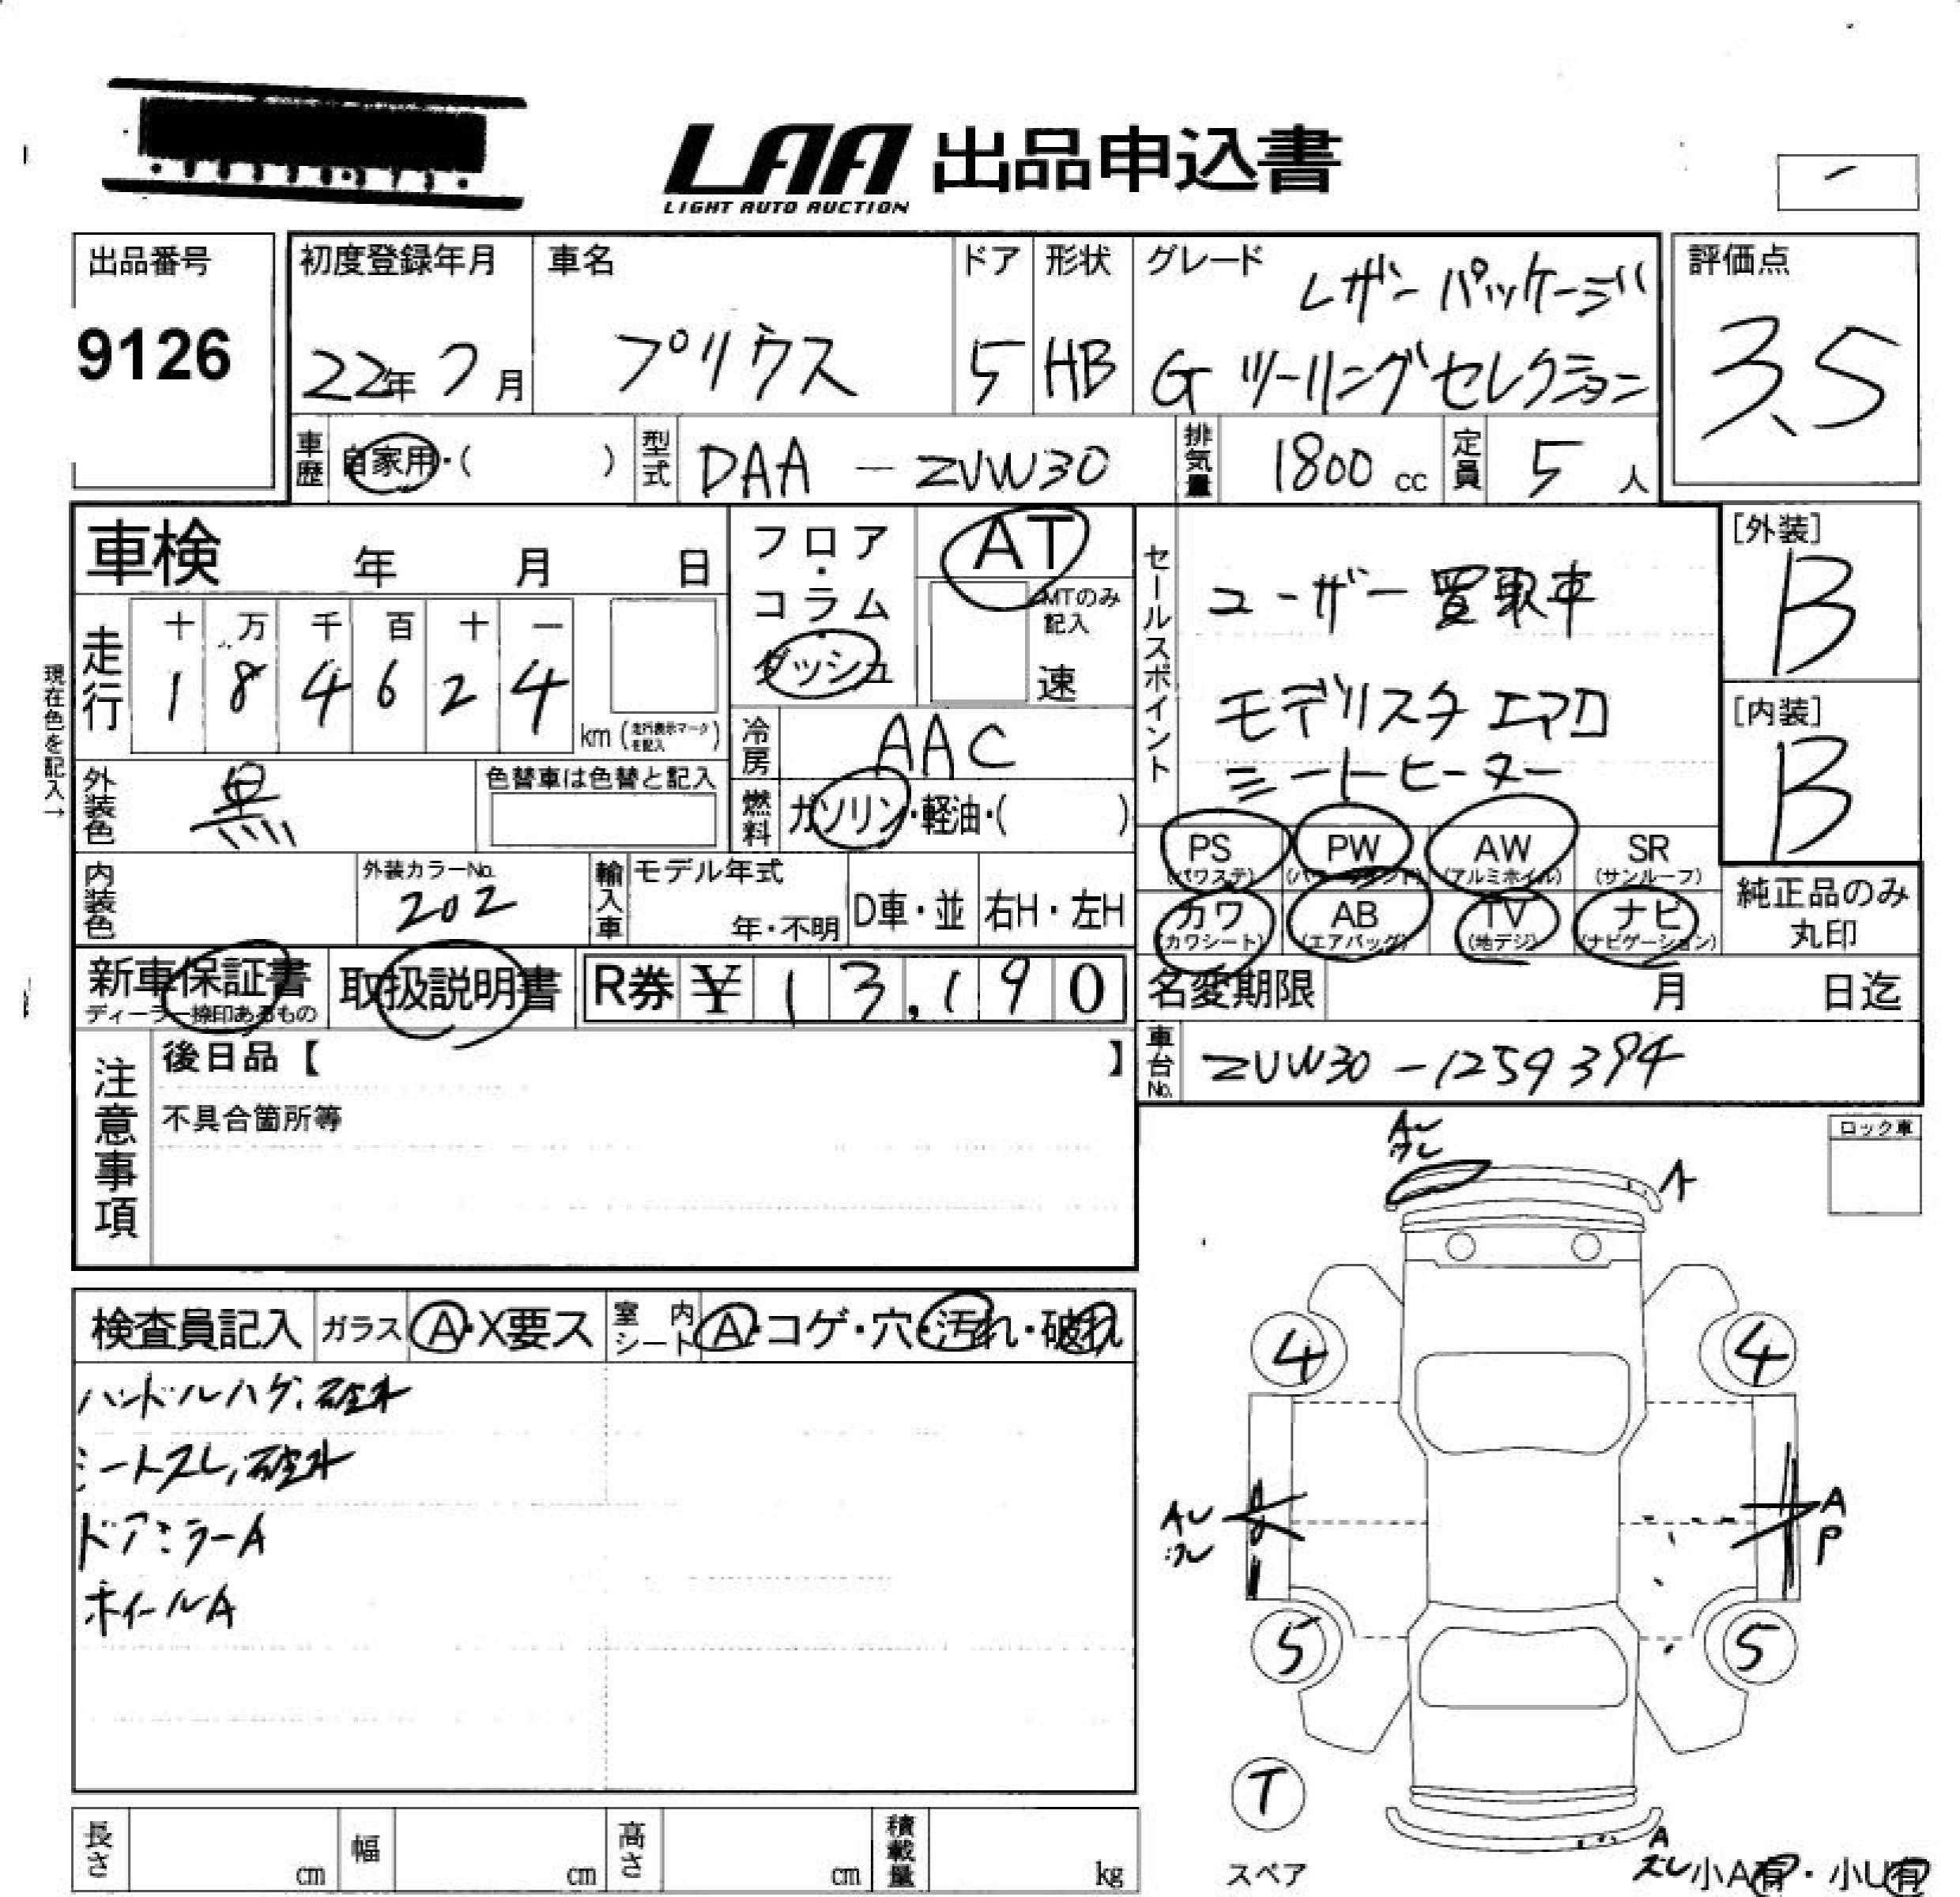 LAA 出品申込書
LIGHT AUTO AUCTION
出品番号
9126
初度登録年月
22年 7月
車名
プリウス
ドア
5
形状
HB
グレード
レザーパッケージ
G ツーリングセレクション
評価点
3.5
車歴
自家用・( )
型式
DAA - ZVW30
排気量
1800 cc
定員
5 人
車検 年 月 日
フロア・コラム・ダッシュ
AT
MTのみ記入
速
セールスポイント
ユーザー買取車
モデリスタ エアロ
シートヒーター
[外装]
B
[内装]
B
現在色を記入→
走行
十 万 千 百 十 一
1 8 4 6 2 4
km (走行表示マークを記入)
冷房
AAC
外装色
黒
色替車は色替と記入
燃料
ガソリン・軽油・( )
PS (パワステ)
PW
AW (アルミホイル)
SR (サンルーフ)
カワ (カワシート)
AB (エアバッグ)
TV (地デジ)
ナビ (ナビゲーション)
純正品のみ
丸印
内装色
外装カラーNo.
202
輸入車
モデル年式
年・不明
D車・並
右H・左H
新車保証書
ディーラー捺印あるもの
取扱説明書
R券 ¥ 13,190
名変期限 月 日迄
車台No.
ZVW30-1259394
注意事項
後日品【 】
不具合箇所等
ロック車
検査員記入
ガラス
A・X要ス
室内シート
A・コゲ・穴・汚れ・破れ
ハンドルハゲ、破れ
シートスレ、破れ
ドアミラーA
ホイールA
A
4
4
A
P
5
5
T
スペア
A
小A有・小U有
長さ cm
幅 cm
高さ cm
積載量 kg